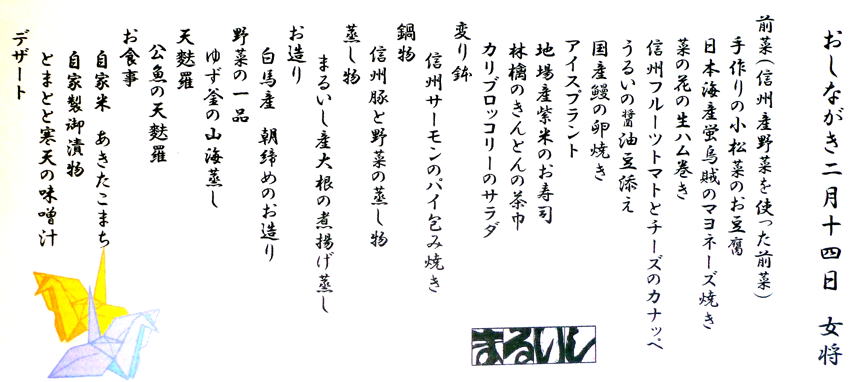 おしながき二月十四日 女将
前菜(信州産野菜を使った前菜)
手作りの小松菜のお豆腐
日本海産蛍烏賊のマヨネーズ焼き
菜の花の生ハム巻き
信州フルーツトマトとチーズのカナッペ
うるいの醤油豆添え
国産鰻の卵焼き
アイスプラント
地場産紫米のお寿司
林檎のきんとんの茶巾
カリブロッコリーのサラダ
変り鉢
信州サーモンのパイ包み焼き
鍋物
信州豚と野菜の蒸し物
蒸し物
まるいし産大根の煮揚げ蒸し
お造り
白馬産 朝締めのお造り
野菜の一品
ゆず釜の山海蒸し
天麩羅
公魚の天麩羅
お食事
自家米 あきたこまち
自家製御漬物
とまとと寒天の味噌汁
デザート
まるいし